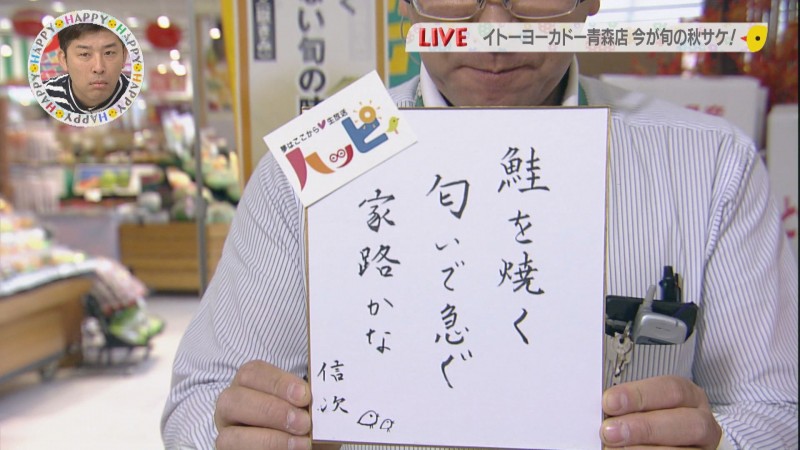 HAPPY HAPPY HAPPY HAPPY HAPPY HAPPY
LIVE イトーヨーカドー青森店 今が旬の秋サケ!
夢はここから生放送
ハッピィ
鮭を焼く
匂いで急ぐ
家路かな
信次
い旬の